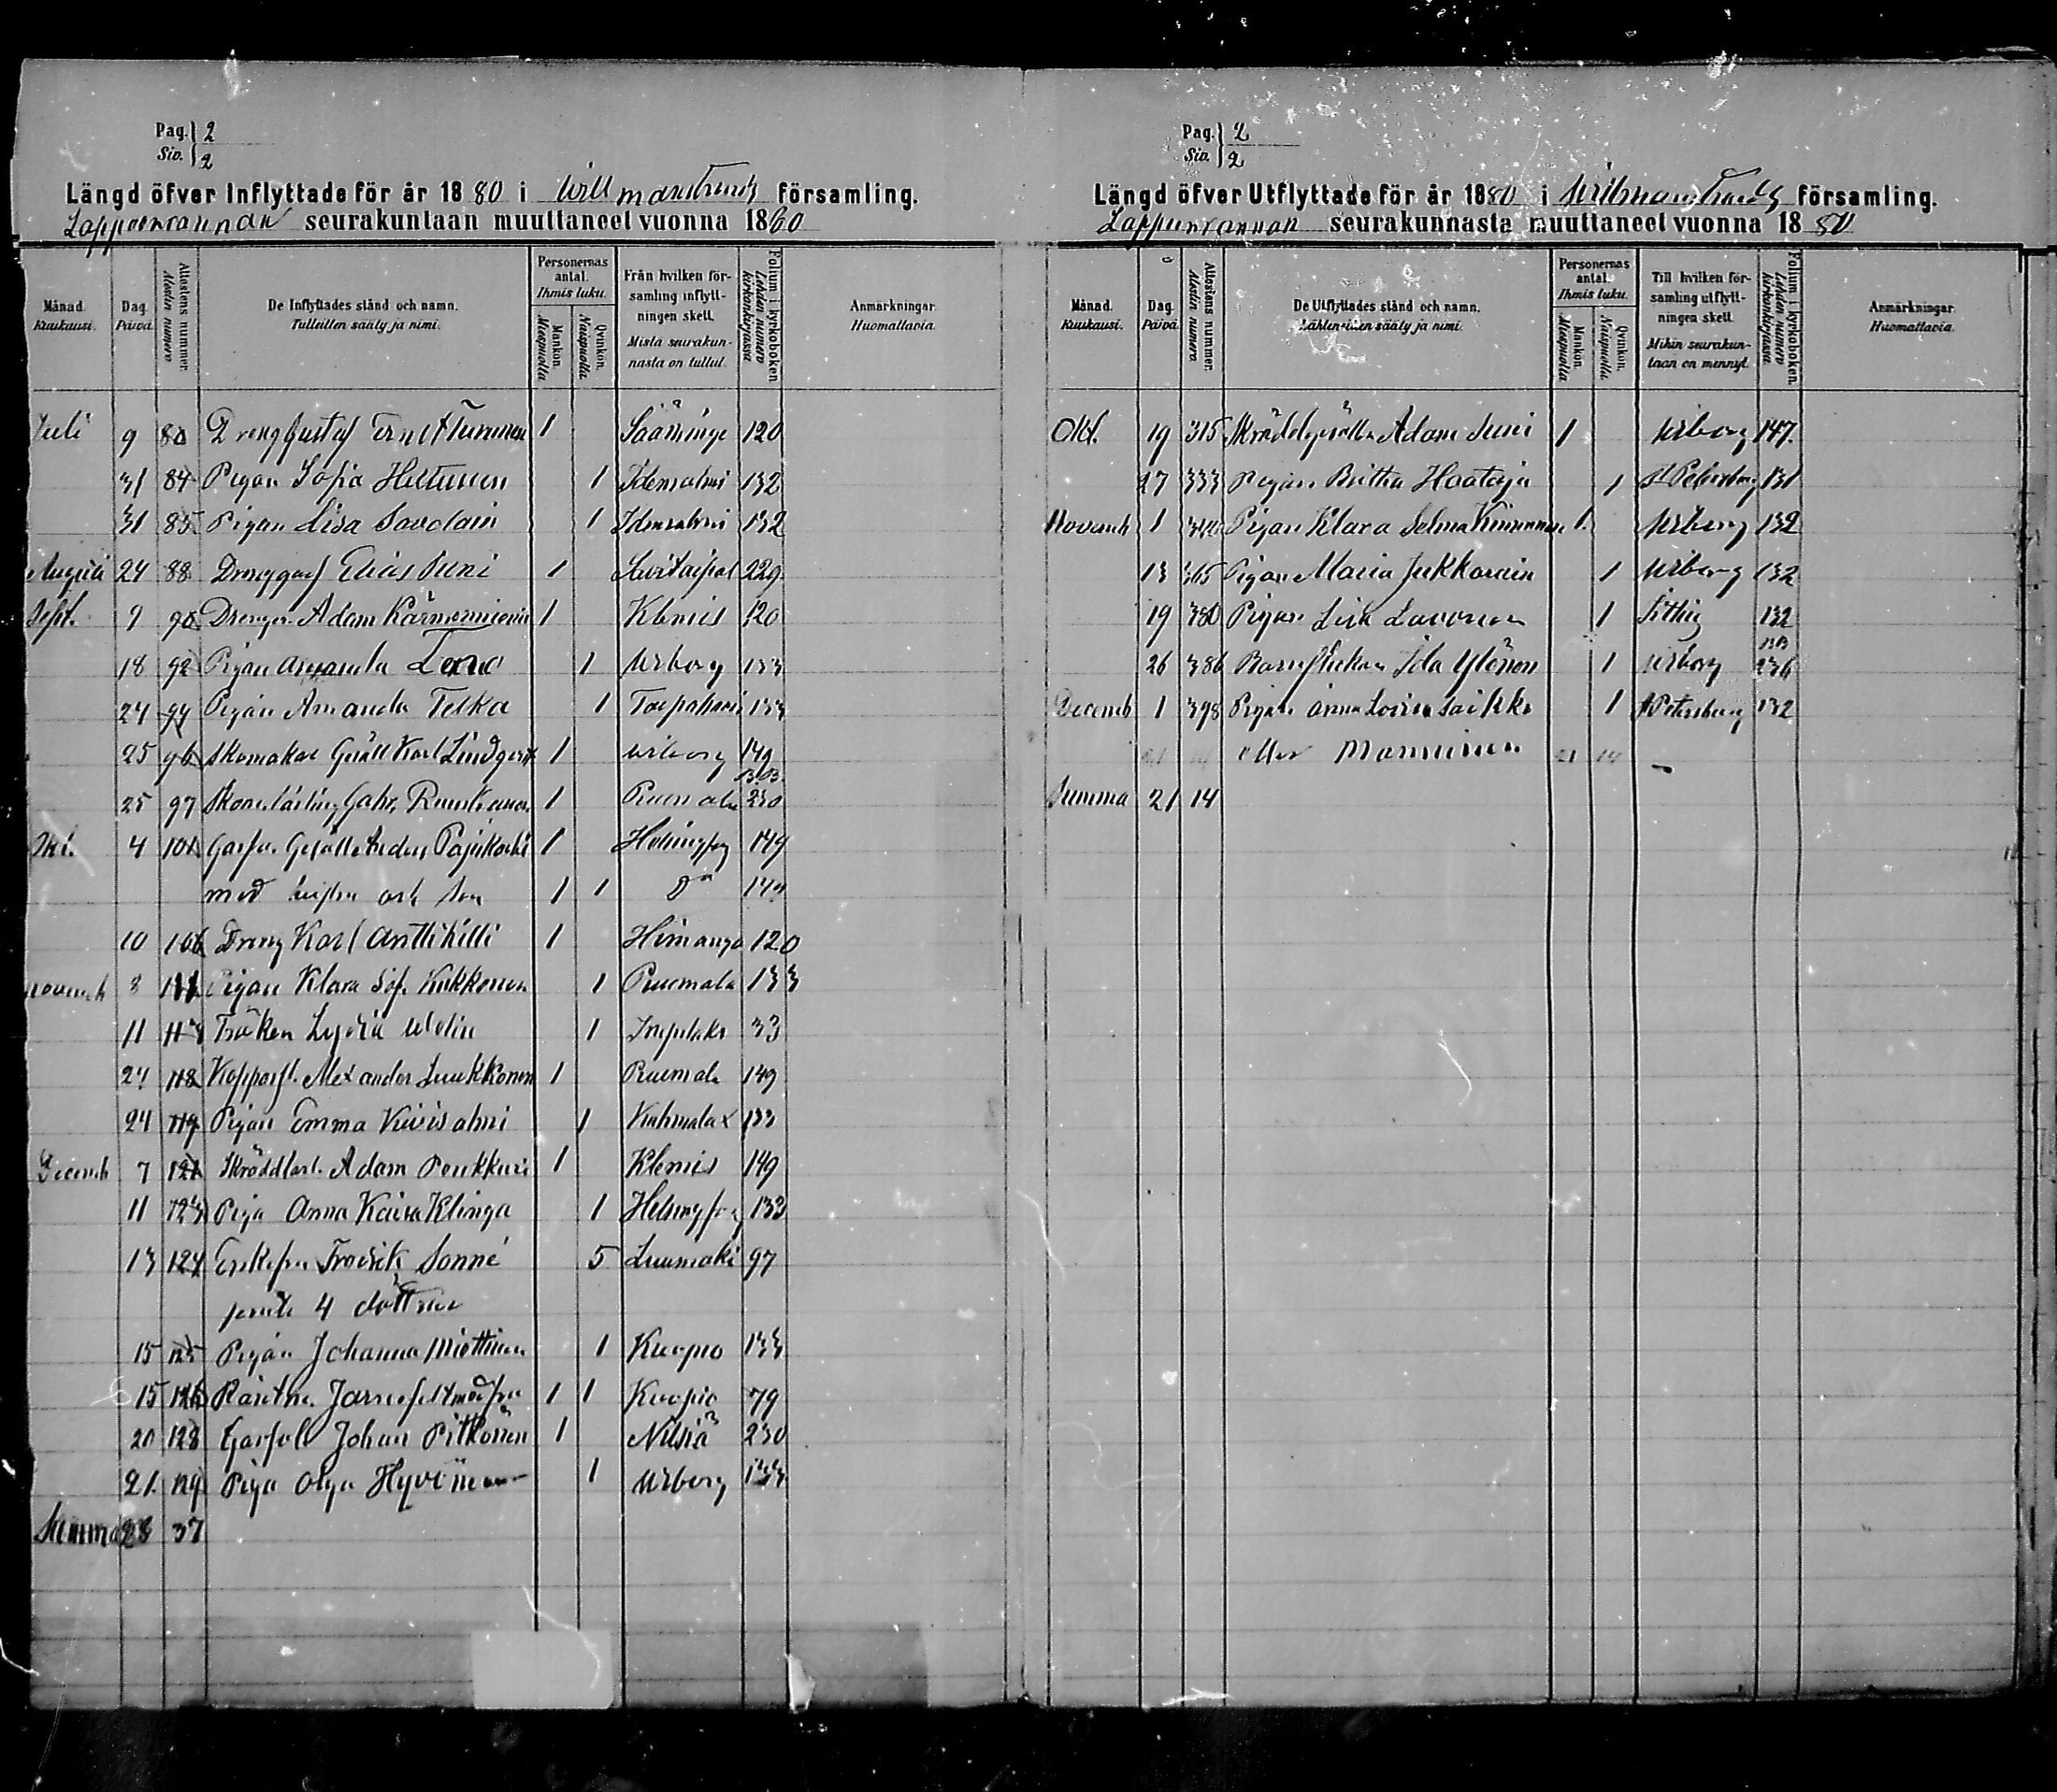 Pag. 2
Siv. 2
Längd öfver Inflyttade för år 1880 i Willmanstrands församling.
Lappeenrannan seurakuntaan muuttaneet vuonna 1880
Månad. Kuukausi. Dag. Päivä. Attestens nummer. Alestin numero De Inflyttades stånd och namn. Tulleitten sääty ja nimi. Personernas antal. Ihmis luku. Mankön. Miespuolia Qvinkön. Naispuolia Från hvilken församling inflyttningen skett. Mista seurakunnasta on tullut. Folium i kyrkoboken Lehden numero kirkonkirjassa Anmärkningar. Huomattavia.
Juli 9 80 Dreng Gustaf Ernst Tuninen 1 Sääminge 120
31 84 Pigan Sofia Huttunen 1 Idensalmi 132
31 85 Pigan Lisa Savolain 1 Idensalmi 132
Augusti 24 88 Drengen Elias Suni 1 Savitaipal 229
Sept. 9 90 Drengen Adam 1 Klemis 120
18 92 Pigan Amanda 1 Wiborg 133
24 94 Pigan Amanda Telka 1 Taipalsaari 133
25 96 Skomakar Gesäll Karl Lindqvist 1 Wiborg 149
25 97 Skom. lärling Gabr. 1 Puumala 230
Okt. 4 101 Garfv. Gesälle Anders Pajukoski 1 Helsingfors 149
med hustru och son 1 1 D:o 149
10 106 Dreng Karl Anttikilli 1 Himanga 120
Novemb 8 111 Pigan Klara Sof. Kukkonen 1 Puumala 133
11 113 Fröken Lydia Welin 1 Impilaks 33
24 118 Kopparsl. Alexander Luukkonen 1 Puumala 149
24 119 Pigan Emma Kivisalmi 1 Kuhmalax 133
Decemb 7 121 Skräddlärl. Adam Penkkuri 1 Klemis 149
11 123 Piga Anna Kaisa Klinga 1 Helsingfors 133
13 124 Enkefru Fredrik Sonné 5 Luumäki 97
samt 4 döttrar
15 125 Pigan Johanna Miettinen 1 Kuopio 133
15 126 Jarnefelt med fru 1 1 Kuopio 79
20 128 Johan Pitkönen 1 Nilsiä 230
21 129 Piga Olga Hyvönen 1 Wiborg 133
Summa 28 37
Pag. 2
Siv. 2
Längd öfver Utflyttade för år 1880 i Wilmanstrands församling.
Lappenrannan seurakunnasta muuttaneet vuonna 1880
Månad. Kuukausi. Dag. Päivä. Attestens nummer. Alestin numero De Utflyttades stånd och namn. Lähteneitten sääty ja nimi. Personernas antal. Ihmis luku. Mankön. Miespuolia Qvinkön. Naispuolia Till hvilken församling utflyttningen skett. Mihin seurakuntaan on mennyt. Folium i kyrkoboken. Lehden numero kirkonkirjassa Anmärkningar. Huomattavia.
Okt. 19 315 Skräddgesällen Adam Suni 1 Wiborg 147
27 333 Pigan Britta Haataja 1 St Petersburg 131
Novemb 1 340 Pigan Klara Selma Kinnunen 1 Wiborg 132
13 365 Pigan Maria Jukkarain 1 Wiborg 132
19 380 Pigan Lisa 1 132
26 386 Ida Ylönen 1 Wiborg 236
Decemb 1 398 Pigan Anna Lovisa Saikko 1 St Petersburg 132
eller Manninen
Summa 21 14